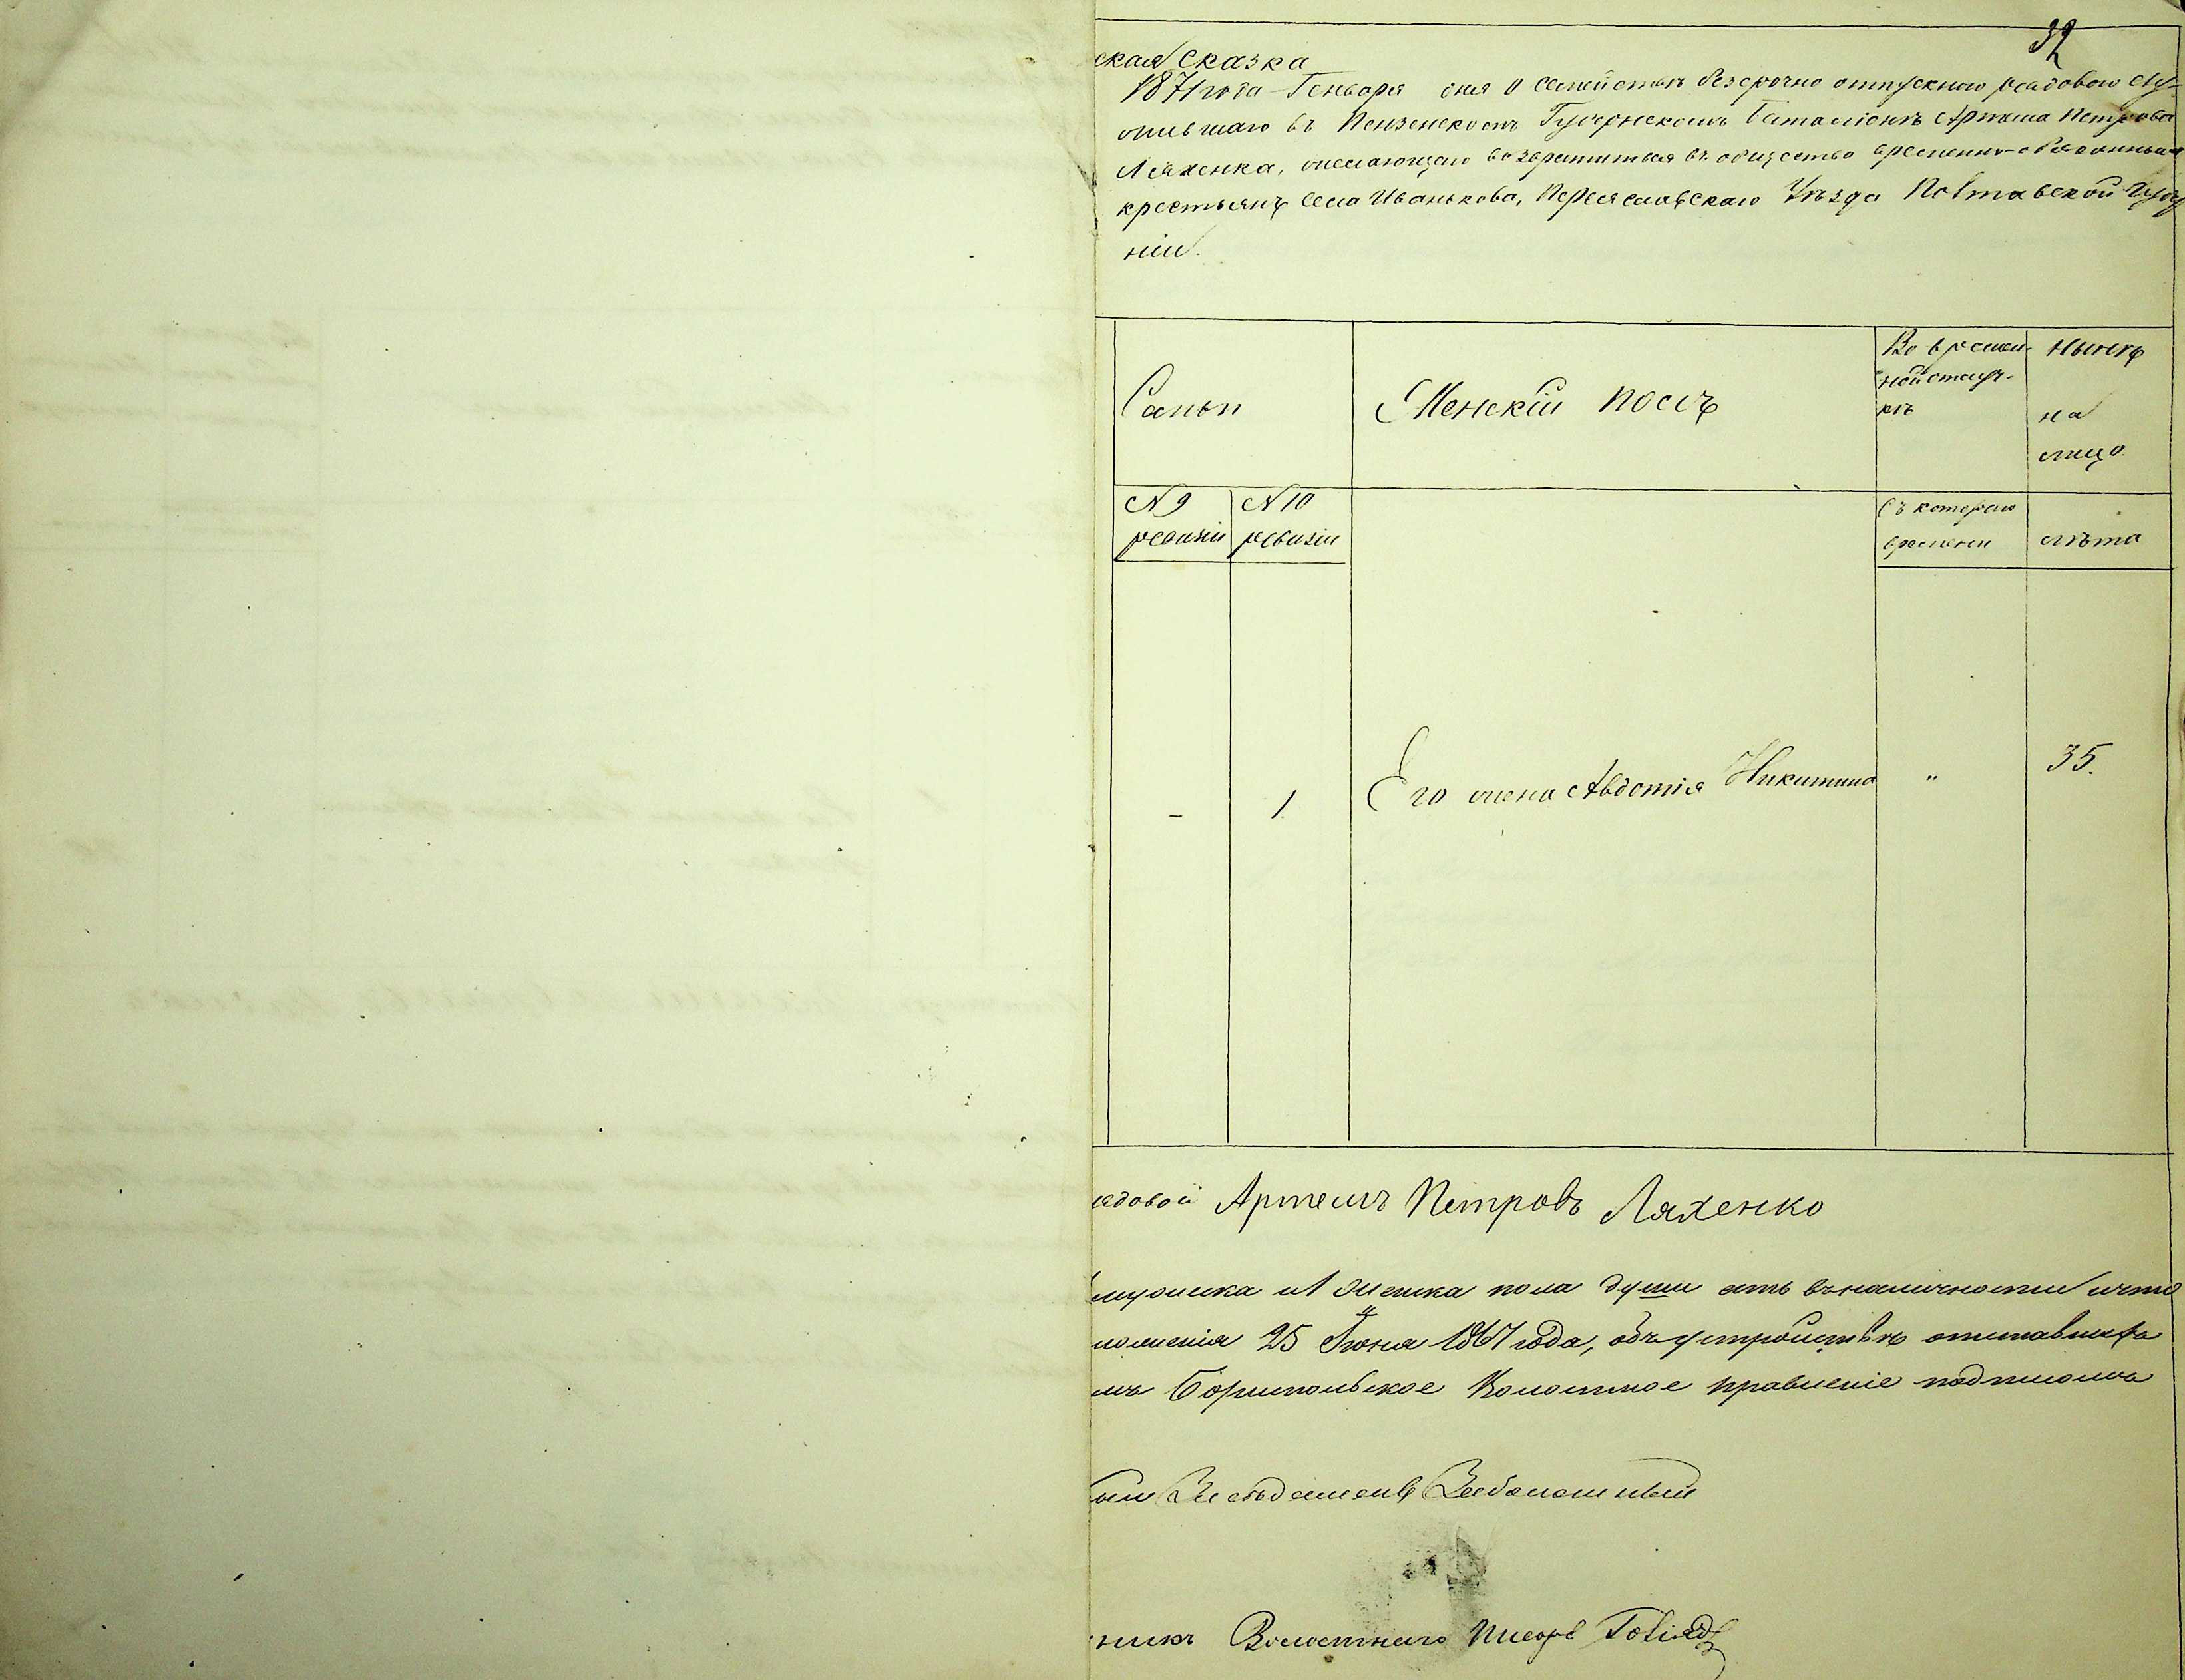 32
ская сказка
1871 года Генваря дня о семействѣ безсрочно отпускного рядового слу-
жившаго въ Пензенскомъ Губернскомъ баталіонѣ Артема Петрова
Ляхенка, желающаго возвратиться въ общество временно-обязанныхъ
крестьянъ села Иванькова, Переяславскаго Уѣзда Полтавской Губер
ніи.
Женскій полъ
Во времен-
ной отлуч-
кѣ
Нынѣ
на
лицо
№ 9
ревизіи
№ 10
ревизіи
Съ котораго
времени
лѣта
-
1
Его жена Авдотія Никитина
"
35.
ядовой Артемъ Петровъ Ляхенко
мужеска и 1 женска пола души есть въ наличности и что
положенія 25 Іюня 1867 года, объ устройствѣ отставныхъ
мъ Бориспольское Волостное правленіе подписомъ
Засѣдатель Заболотный
никъ Волостнаго Писаря